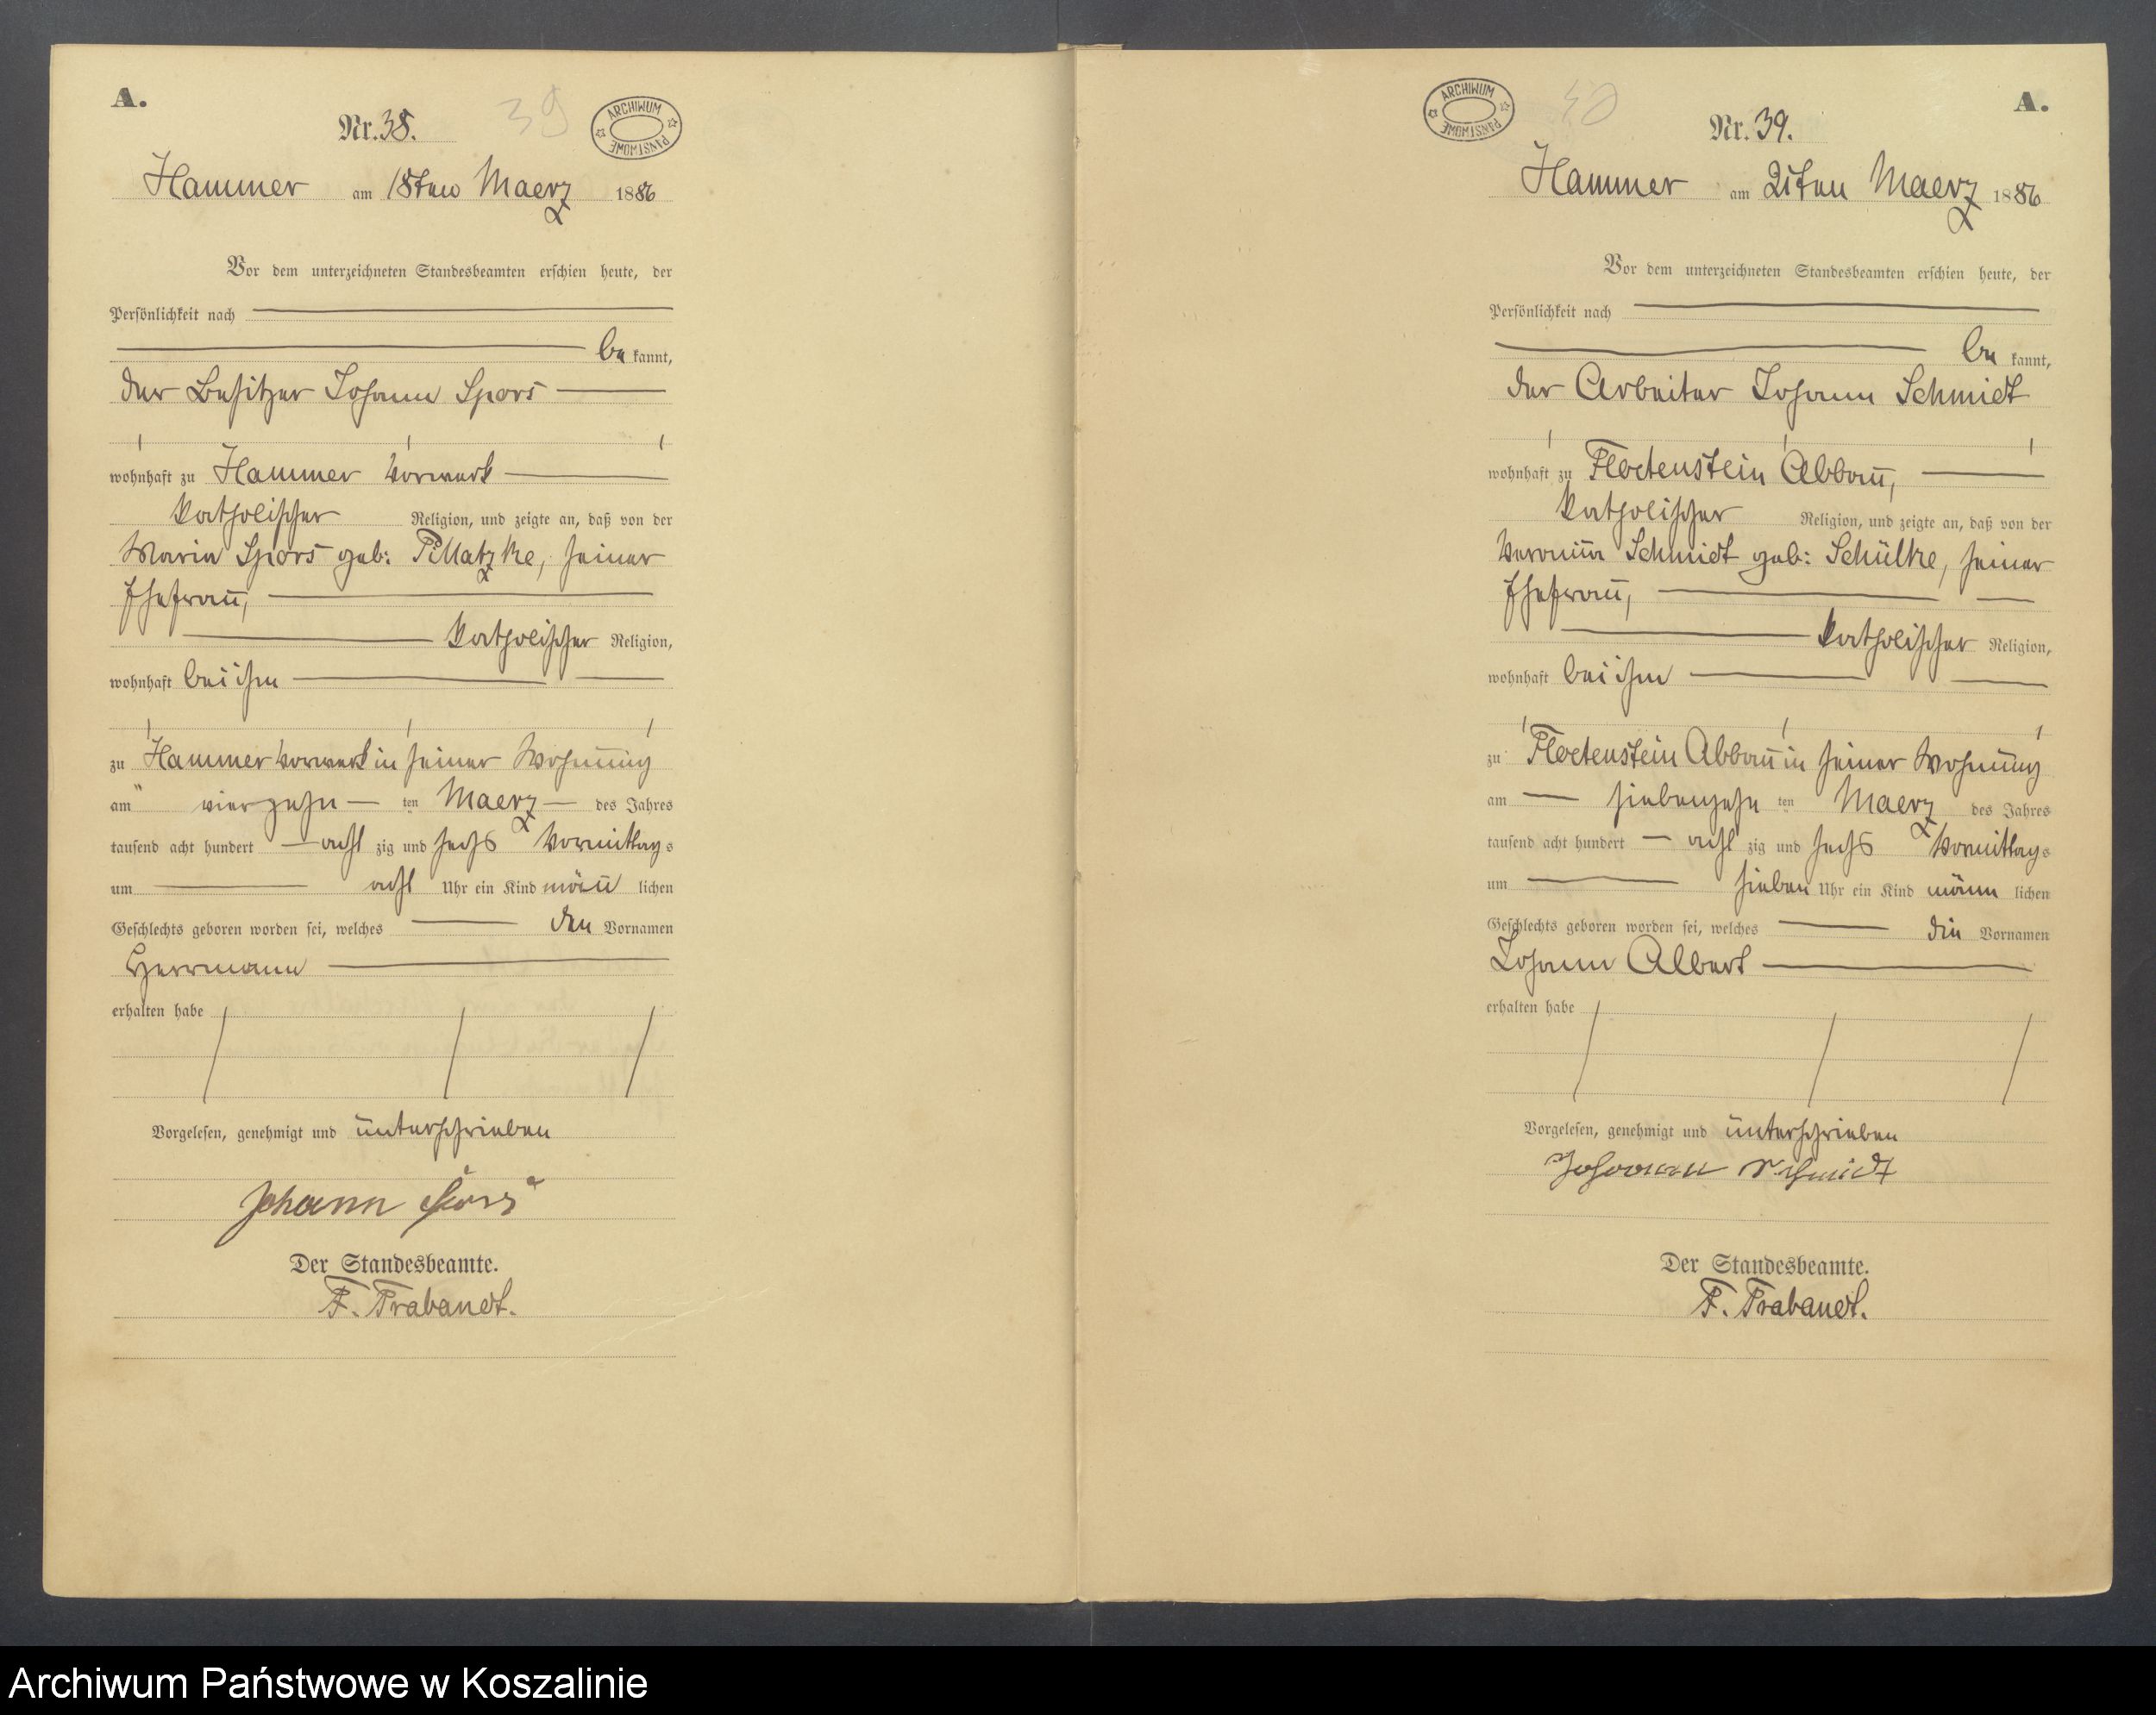 A.
Nr. 38.
39
ARCHIWUM PAŃSTWOWE
Hammer am 18ten Maerz 1886
Vor dem unterzeichneten Standesbeamten erschien heute, der
Persönlichkeit nach
be kannt,
der Besitzer Johann Spors
wohnhaft zu Hammer Vorwerk
katholischer Religion, und zeigte an, daß von der
Maria Spors geb: Pillatzke, seiner
Ehefrau,
katholischer Religion,
wohnhaft bei ihm
zu Hammer Vorwerk in seiner Wohnung
am vierzehn ten Maerz des Jahres
tausend acht hundert acht zig und sechs Vormittags
um acht Uhr ein Kind männ lichen
Geschlechts geboren worden sei, welches den Vornamen
Herrmann
erhalten habe
Vorgelesen, genehmigt und unterschrieben
Johann Spors
Der Standesbeamte.
F. Trabandt.
A.
Nr. 39.
40
ARCHIWUM PAŃSTWOWE
Hammer am 21ten Maerz 1886
Vor dem unterzeichneten Standesbeamten erschien heute, der
Persönlichkeit nach
be kannt,
der Arbeiter Johann Schmidt
wohnhaft zu Floetenstein Abbau,
katholischer Religion, und zeigte an, daß von der
Veronica Schmidt geb: Schülke, seiner
Ehefrau,
katholischer Religion,
wohnhaft bei ihm
zu Floetenstein Abbau in seiner Wohnung
am siebenzehn ten Maerz des Jahres
tausend acht hundert acht zig und sechs Vormittags
um sieben Uhr ein Kind männ lichen
Geschlechts geboren worden sei, welches die Vornamen
Johann Albert
erhalten habe
Vorgelesen, genehmigt und unterschrieben
Johann Schmidt
Der Standesbeamte.
F. Trabandt.
Archiwum Państwowe w Koszalinie